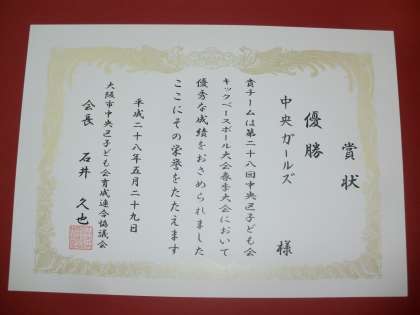 賞状
優勝
中央ガールズ 様
貴チームは第二十八回中央区子ども会
キックベースボール大会春季大会において
優秀な成績をおさめられました
ここにその栄誉をたたえます
平成二十八年五月二十九日
大阪市中央区子ども会育成連合協議会
会長 石井 久也